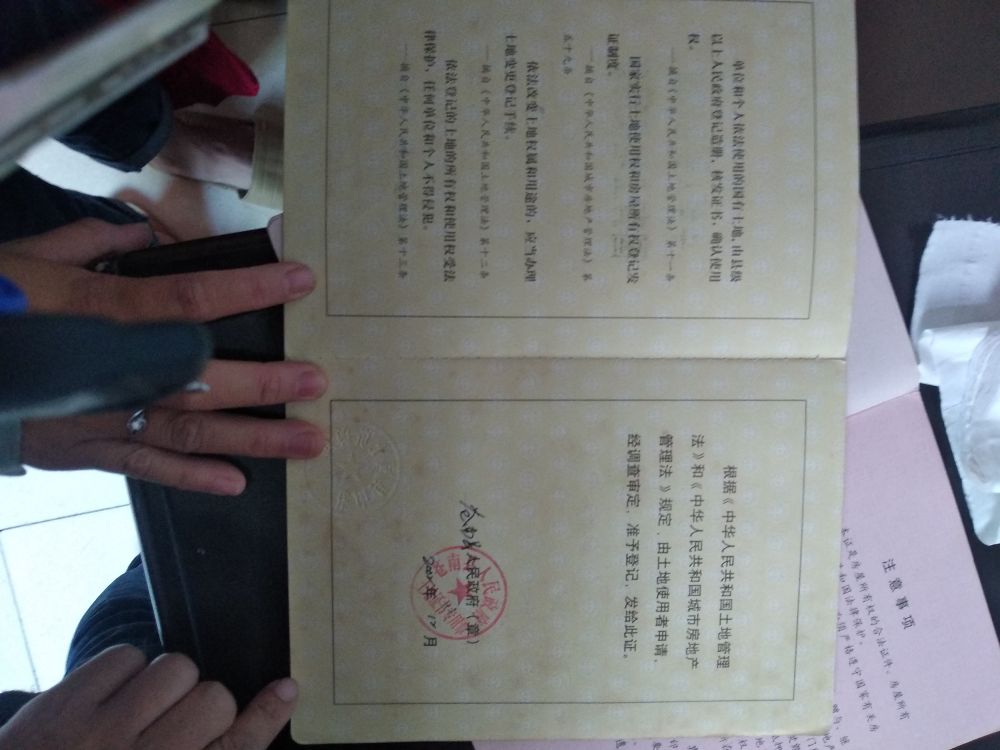 单位和个人依法使用的国有土地，由县级
以上人民政府登记造册，核发证书，确认使用
权。
——摘自《中华人民共和国土地管理法》第十一条
国家实行土地使用权和房屋所有权登记发
证制度。
——摘自《中华人民共和国城市房地产管理法》第
五十九条
依法改变土地权属和用途的，应当办理
土地变更登记手续。
——摘自《中华人民共和国土地管理法》第十二条
依法登记的土地的所有权和使用权受法
律保护，任何单位和个人不得侵犯。
——摘自《中华人民共和国土地管理法》第十三条
根据《中华人民共和国土地管理
法》和《中华人民共和国城市房地产
管理法》规定，由土地使用者申请，
经调查审定，准予登记，发给此证。
人民政府（章）
年12月
注意事项
本证是房屋所有权的合法证件。房屋所有
和国法律保护。
须严格遵守国家有关房